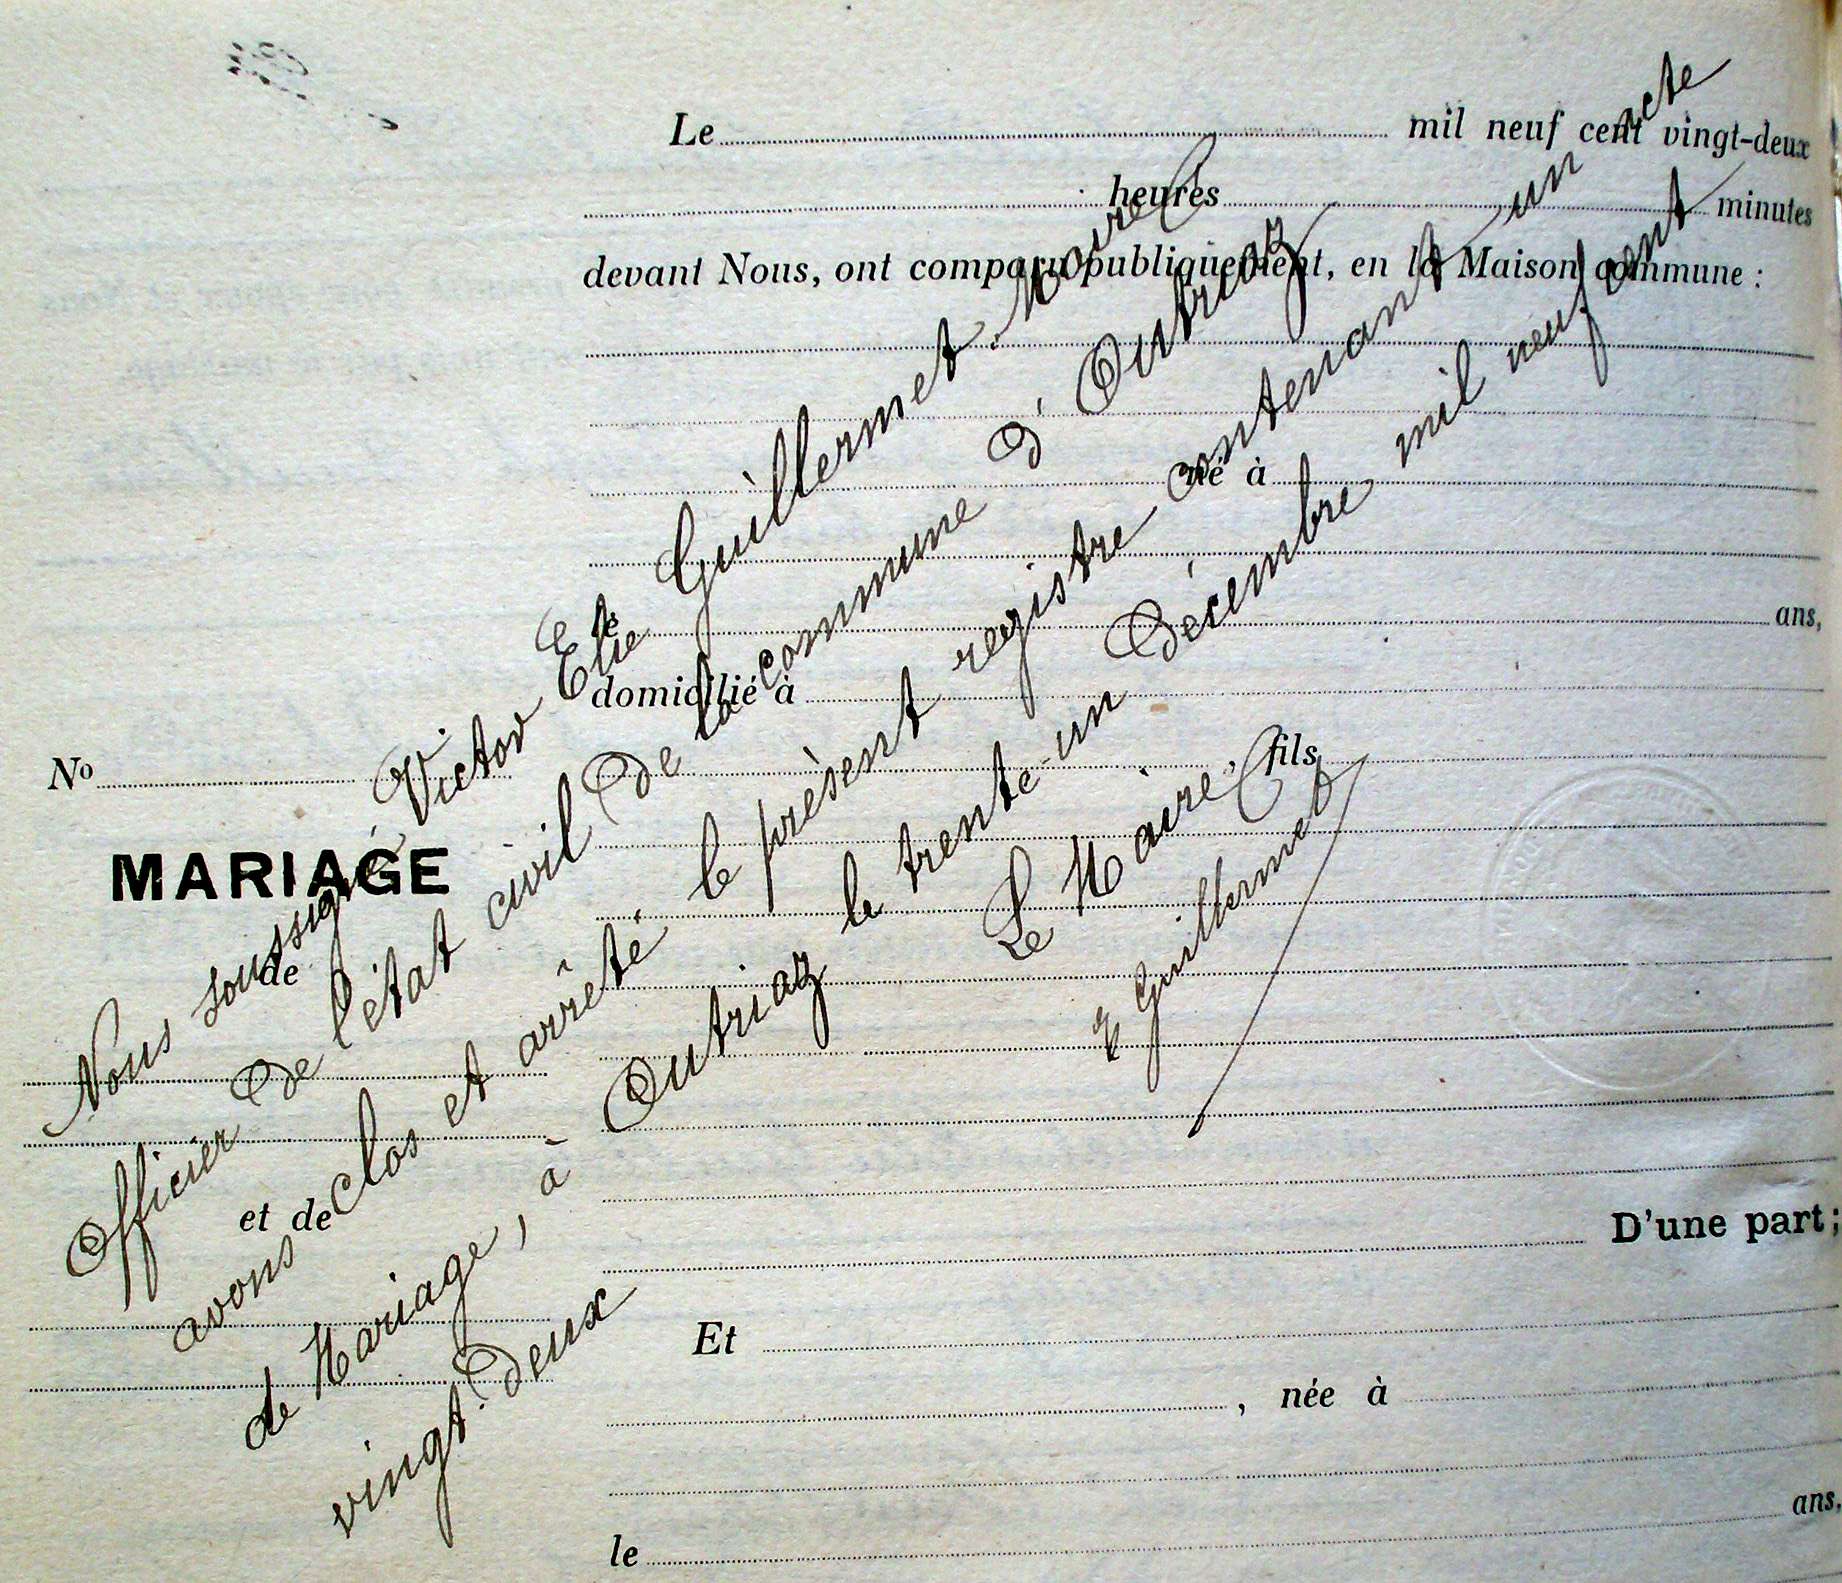 Le mil neuf cent vingt-deux
heures minutes
devant Nous, ont comparu publiquement, en la Maison commune :
né à
le ans,
domicilié à
No
fils
MARIAGE
de
et de
D'une part ;
Et
, née à
le ans,
Nous soussigné Victor Elie Guillermet, Maire
Officier de l'état civil de la commune d'Outriaz
avons clos et arrêté le présent registre contenant un acte
de Mariage, à Outriaz le trente-un Décembre mil neuf cent
vingt-deux
Le Maire,
E Guillermet